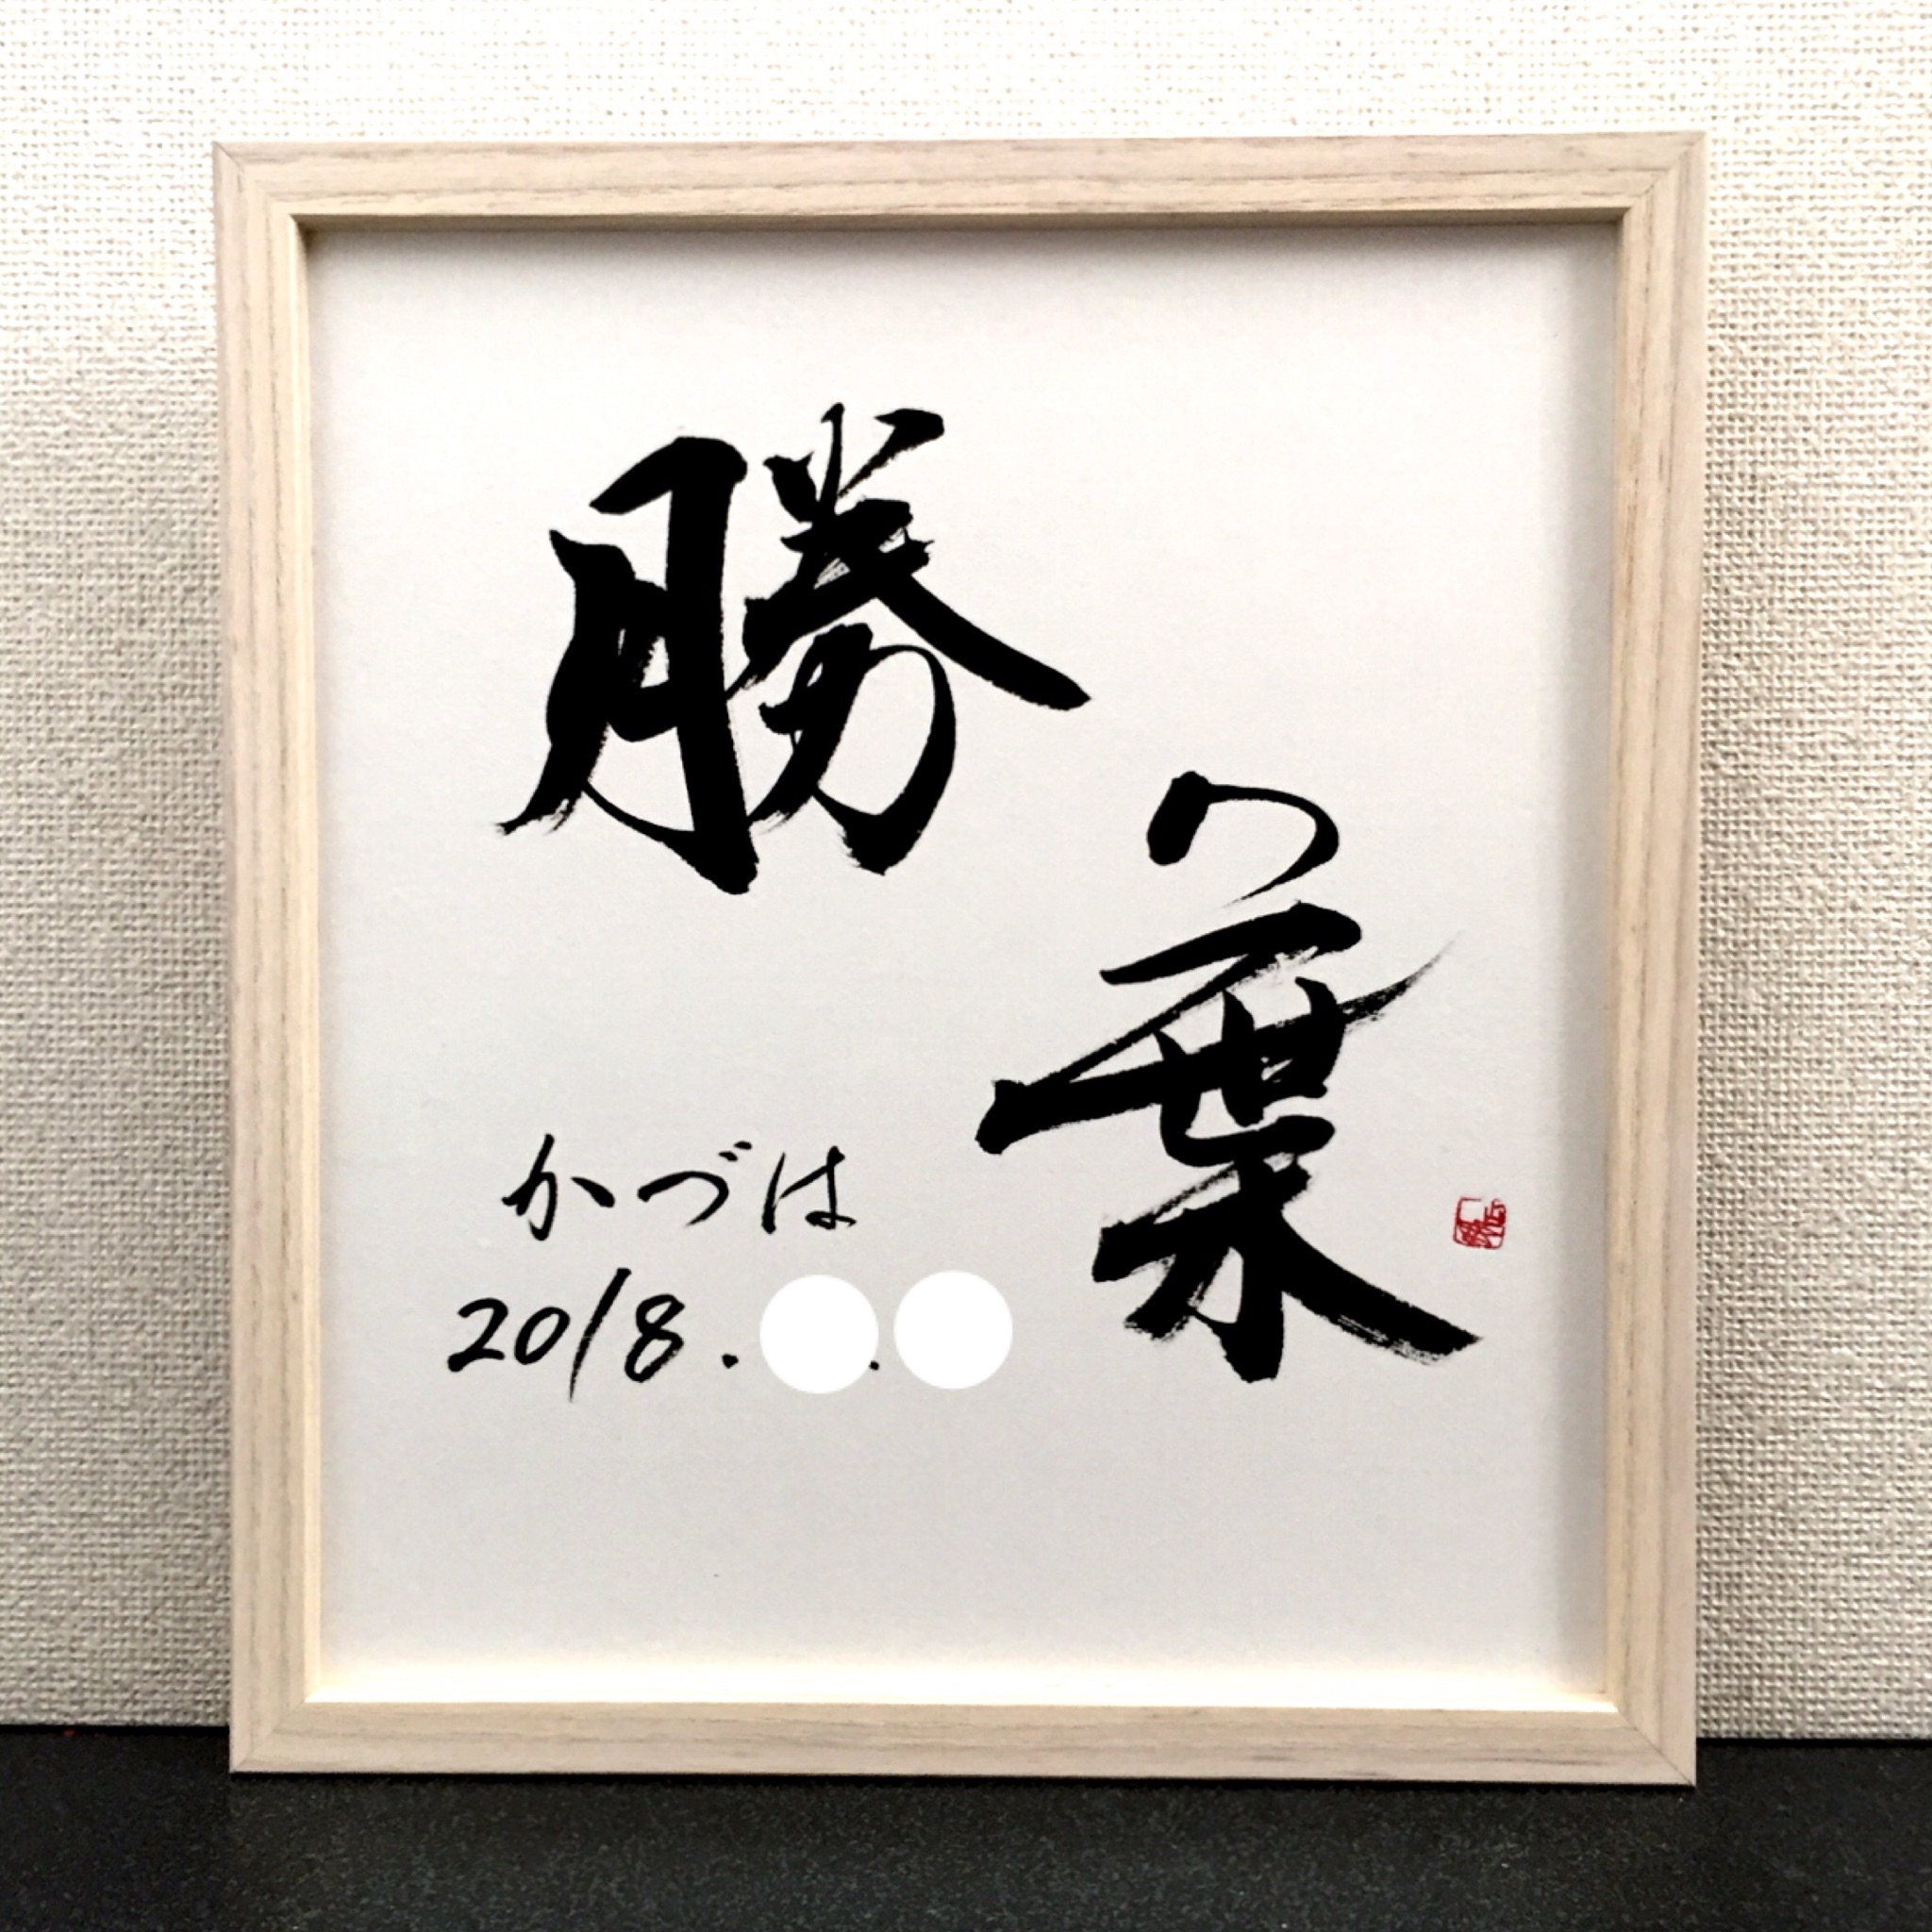 勝
つ
葉
かづは
2018. .